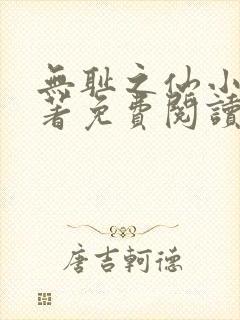 無耻之仙小
著免費閱讀
唐吉軻德